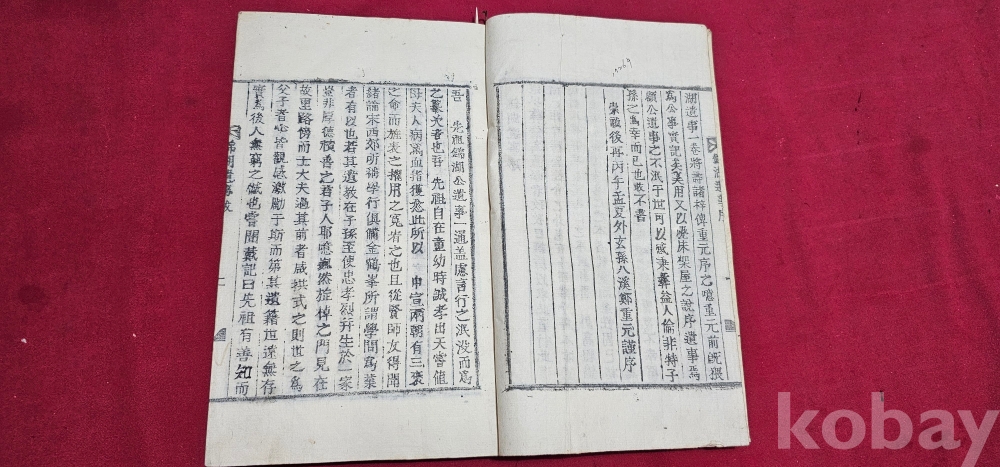 湖遺事一卷將壽諸梓俾重元序之噫重元前旣猥
爲公事實記矣奚用又以疊床架屋之說序遺事焉
顧公遺事之不泯于世可以感秉彛益人倫非特子
孫之爲幸而已也敢不書
崇禎後再丙午孟夏外玄孫八溪鄭重元謹序
吾 先祖錦湖公遺事一通盖慮言行之泯没而爲
之纂次者也吾 先祖自在童幼時誠孝出天嘗値
母夫人病爲血指獲愈此所以 中宣兩朝有三褒
之命而旌表之擢用之寃宥之也且從賢師友得聞
緖論宋西郊所稱學行俱備金鶴峯所謂學問爲業
者有以也若其遺敎在子孫至使忠孝烈幷生於一家
豈非厚德積善之君子人耶噫巍然旌棹之門見在
故里路傍而士大夫過其前者咸拱式之則世之爲
父子者必皆觀感激勵于斯而第其遺籍世遠無存
實爲後人無窮之慨也嘗聞戴記曰先祖有善知而
錦湖遺事
kobay